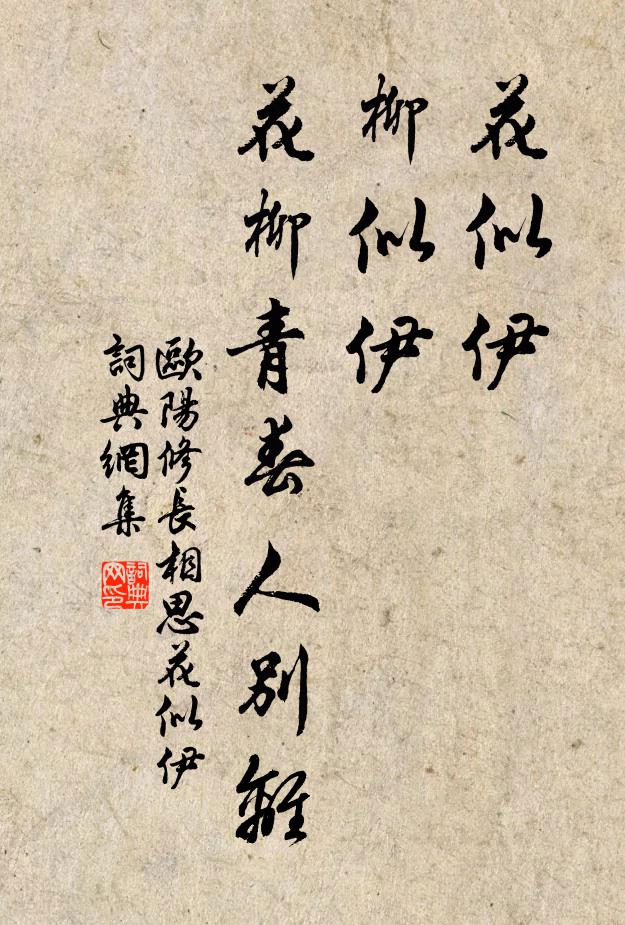 花似伊
柳似伊
花柳青春人別離
歐陽修長相思花似伊
詞典網集
詞典
网印